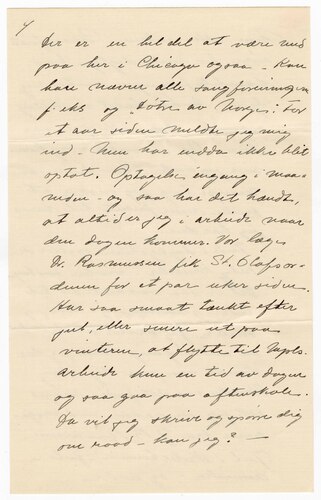 4
Der er en hel del at være med
paa her i Chicago ogsaa - Kan
bare nævne alle sangforeningene
f. eks og "Døtre av Norge." For
et aar siden meldte jeg mig
ind - Men har endda ikke blit
optat. Optagelse engang i maa-
neden - og saa har det hændt,
at altid er jeg i arbeide naar
den dagen kommer. Vor læge
Dr. Rasmussen fik St. Olafsor-
denen for et par uker siden.
Har saa smaat tænkt efter
jul, eller senere ut paa
vinteren, at flytte til Mpls.
Arbeide kun en tid av dagen
og saa gaa paa aftenskole.
Da vil jeg skrive og spørre dig
om raad - kan jeg? -